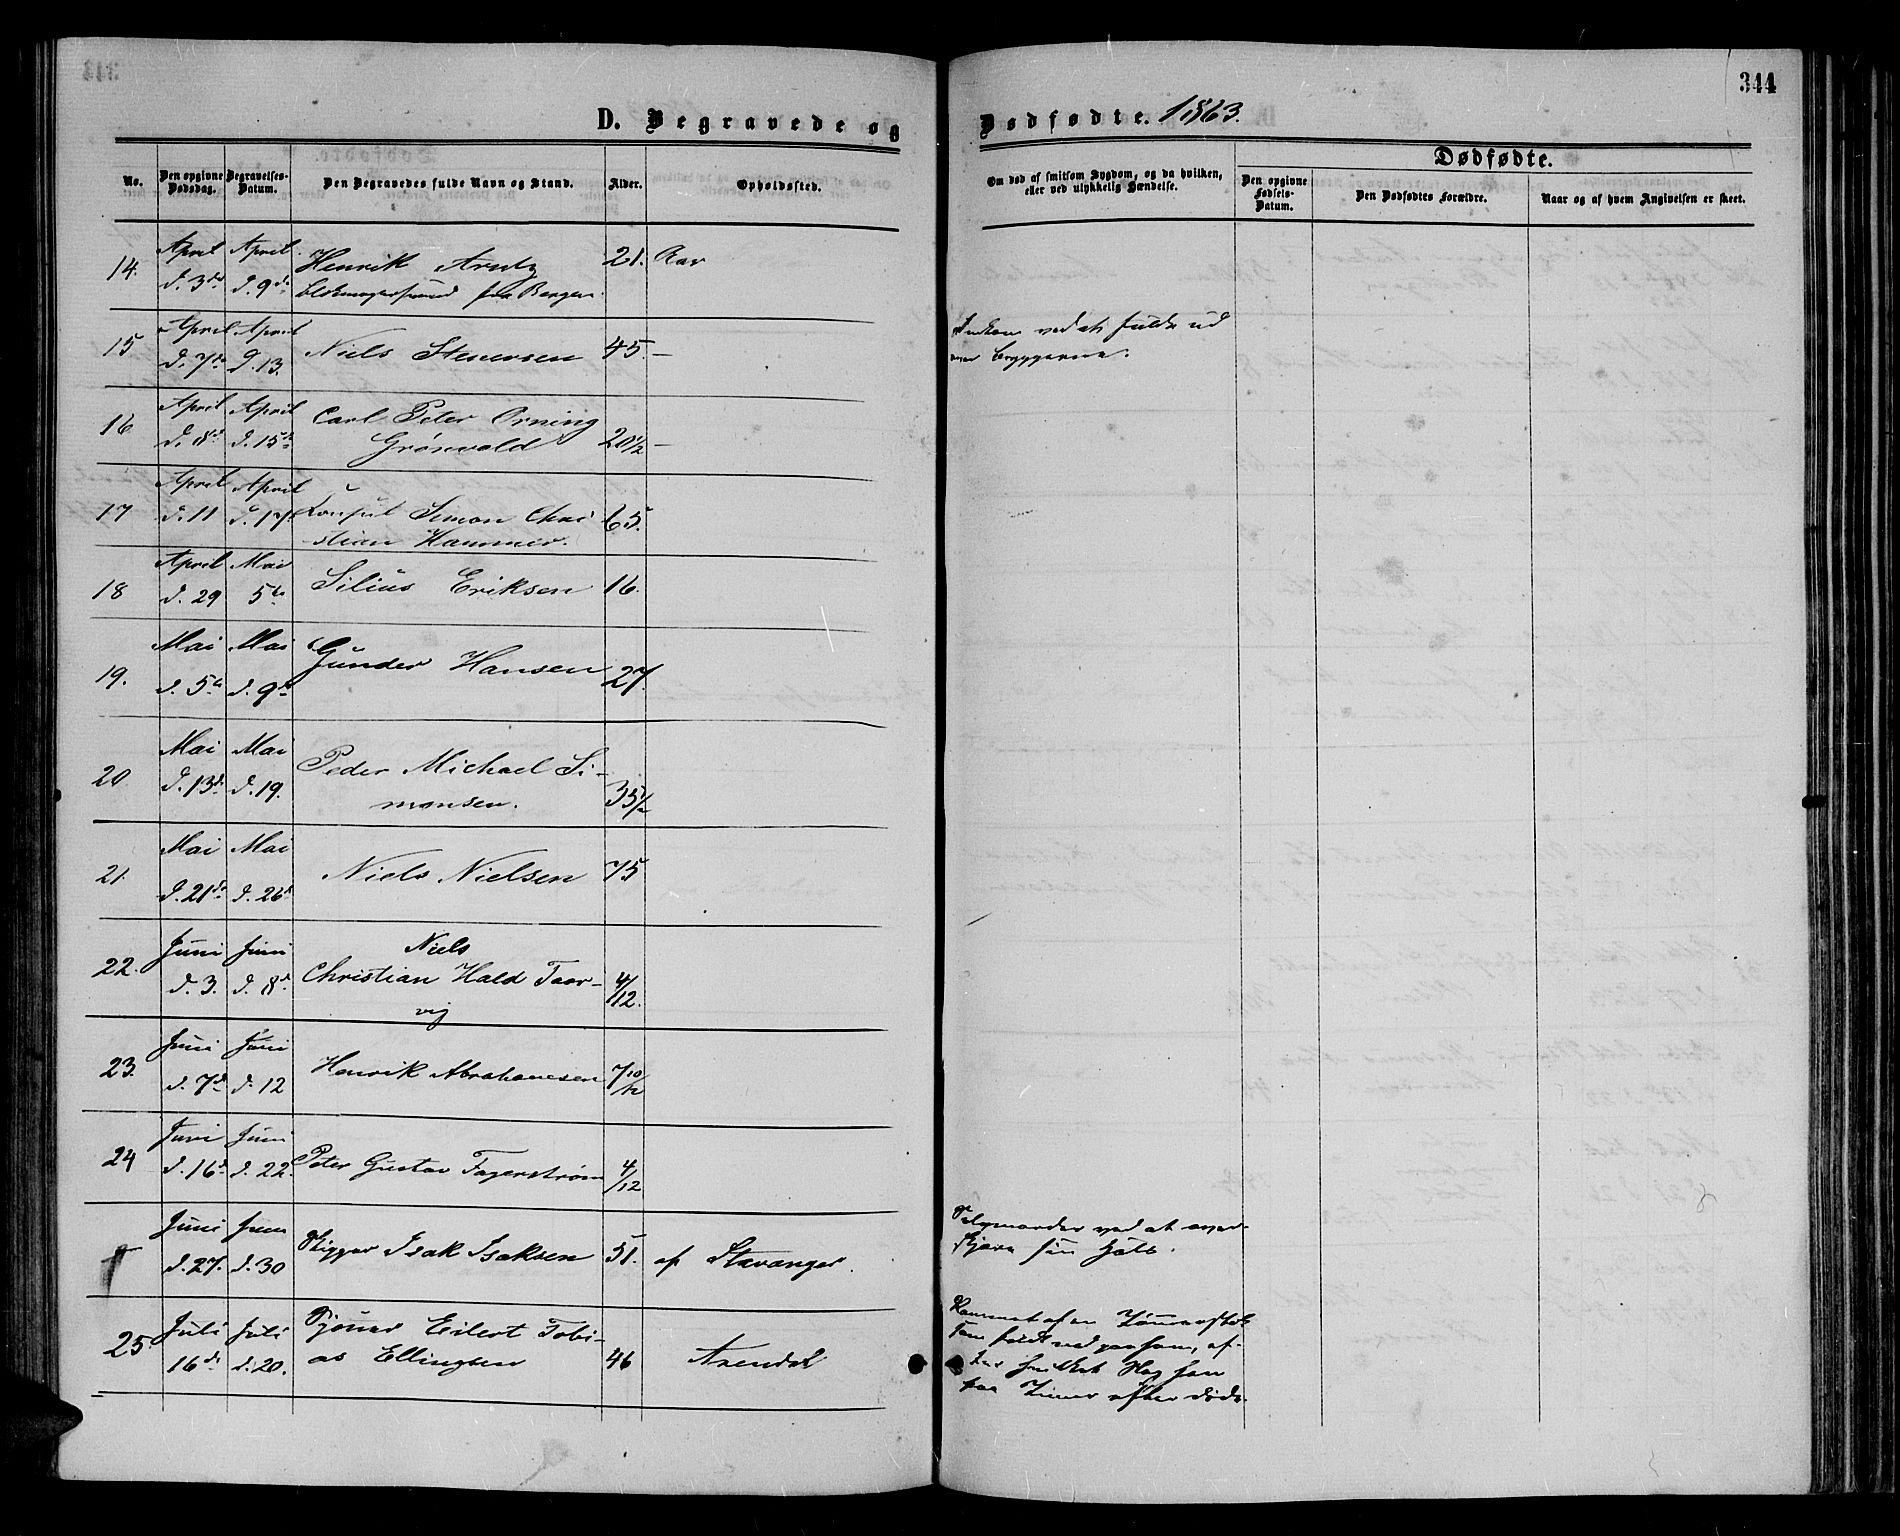 344
D. Begravede og Dødfødte. 1863.
Dødfødte.
No.
Den opgivne Dødsdag.
Begravelses-Datum.
Den Begravedes fulde Navn og Stand.
Alder.
Opholdssted.
Om død af smitsom Sygdom, og da hvilken, eller ved ulykkelig Hændelse.
Den opgivne Fødsels-Datum.
Den Dødfødtes Forældre.
Naar og af hvem Angivelsen er skeet.
14. April d. 3de April d. 9de Henrik Arntz 21. Aar
fra Bergen.
15 April d. 7de April d. 13. Niels Stenersen 45. —
ved at falde ud
Bryggerne.
16 April d. 8de April d. 15de Carl Peter Orning
Grønvold 20 1/2 —
17 April d. 11 April d. 17 Konsul Simon Chri
stian Hammer. 65.
18 April d. 29 Mai 5te Silius Eriksen 16.
19. Mai d. 5te Mai d. 9de Gunder Hansen 27.
20 Mai d. 13de Mai d. 19. Peder Michael Si-
monsen. 35 1/2
21. Mai d. 21de Mai d. 26d Niels Nielsen 75
22. Juni d. 3. Juni d. 8de Niels
Christian Hald Taar-
vig 4/12.
23. Juni d. 7de Juni d. 12 Henrik Abrahamsen 7 10/12
24 Juni d. 16de Juni d. 22. Peter Gustav Fagerstrøm 4/12
Juni d. 27. Juni d. 30 Skipper Isak Isaksen 51. af Stavanger.
Selvmorder ved at over-
skjære sin Hals.
25 Juli 16de Juli d. 20. Eilert Tobi-
as Ellingsen 46 Arendal
Rammet af en Tømmerstok
som faldt ned paa ham, af-
Slag han
Timer efter døde.